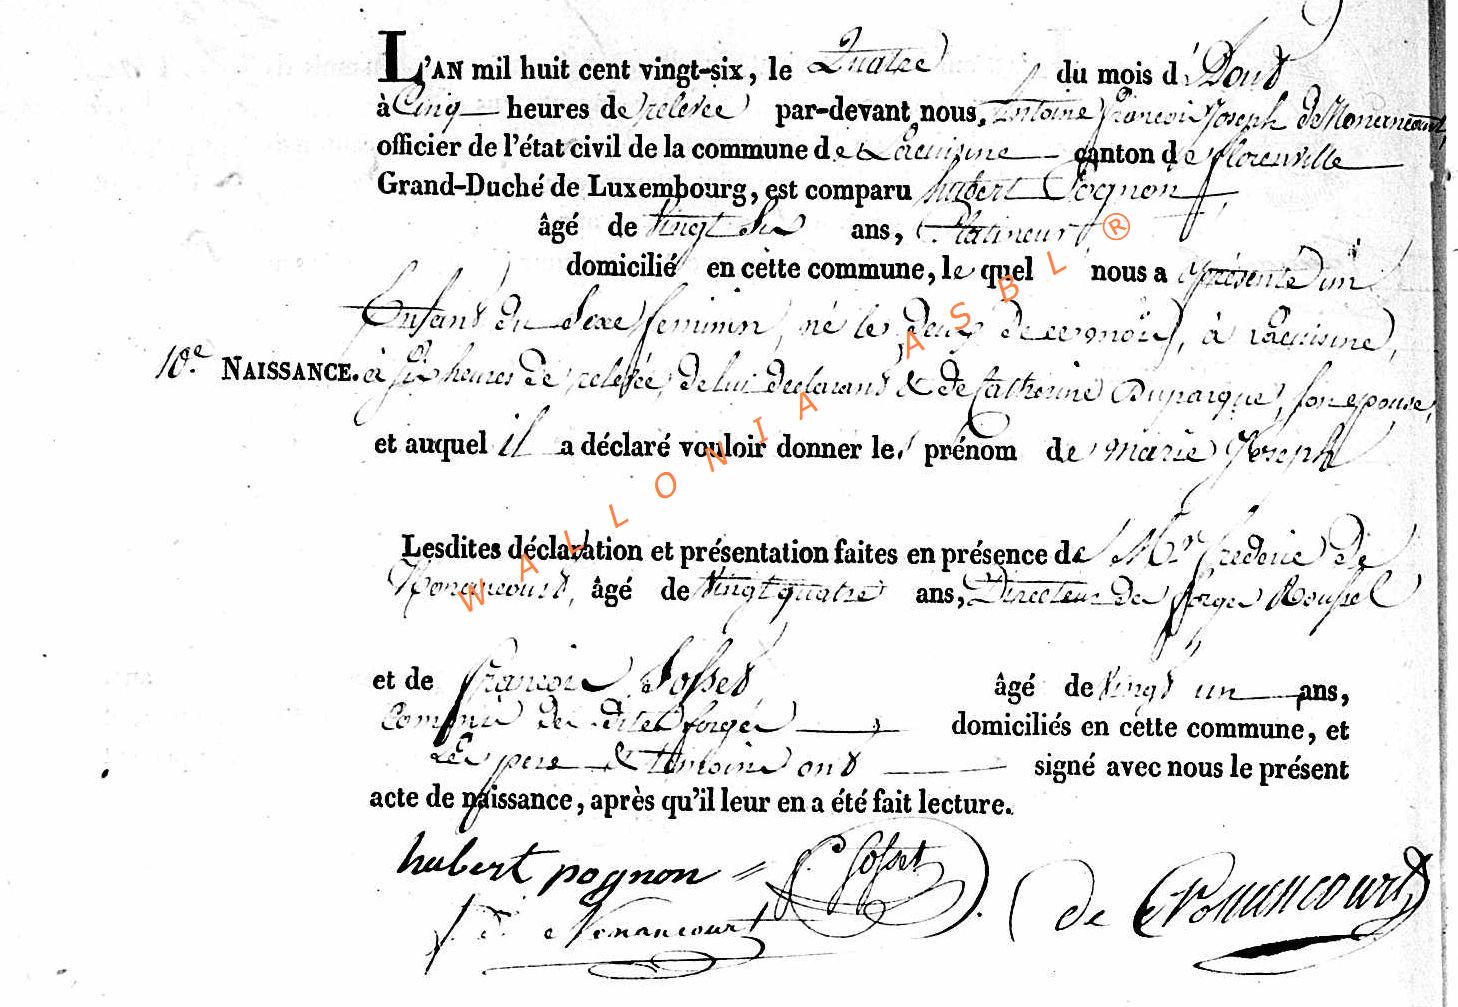 L'AN mil huit cent vingt-six, le Quatre du mois d'Aout
à Cinq heures de relevée par-devant nous, Antoine françois Joseph de Nonancourt,
officier de l'état civil de la commune de Lacuisine canton de florenville
Grand-Duché de Luxembourg, est comparu hubert Pognon,
âgé de Vingt Six ans, Platineur
domicilié en cette commune, le quel nous a présenté un
Enfant du Sexe feminin, né le deux de ce mois, à Lacuisine,
10.e NAISSANCE. à Six heures de relevée, de lui declarant & de Catherine Duparque, son epouse,
et auquel il a déclaré vouloir donner les prénom de marie Joseph
Lesdites déclaration et présentation faites en présence de Mr frederic de
Nonancourt, âgé de Vingt quatre ans, Directeur de forges Roussel
et de françois Sosset âgé de Vingt un ans,
commis de dites forges domiciliés en cette commune, et
Les pere & temoins ont signé avec nous le présent
acte de naissance, après qu'il leur en a été fait lecture.
hubert pognon f. Sosset
f. de Nonancourt de Nonancourt
WALLONIA ASBL ®